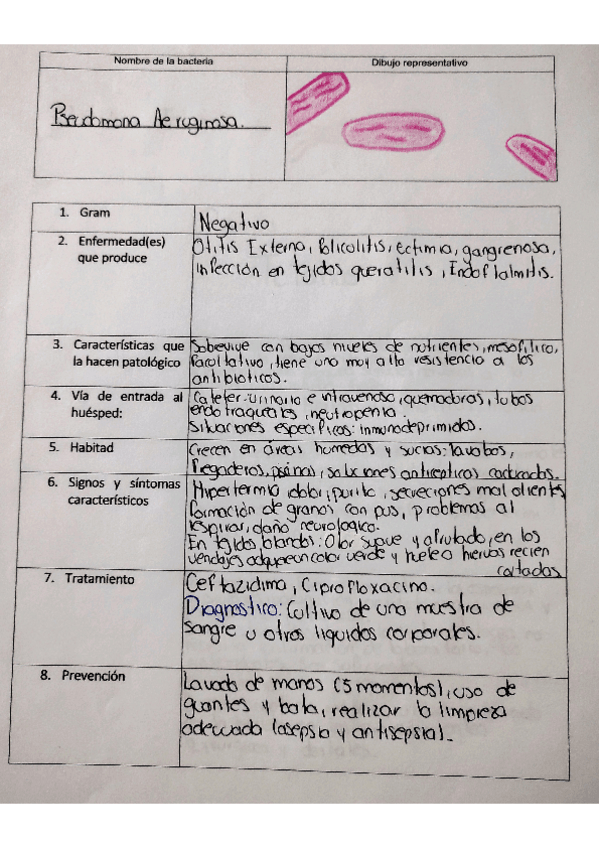 Nombre de la bacteria
Dibujo representativo
Pseudomona Aeruginosa.
1. Gram
Negativo
2. Enfermedad(es) que produce
Otitis Externa, Policolitis, ectimia, gangrenosa,
infección en tejidos queratitis, Endoftalmitis.
3. Características que la hacen patológico
Sobrevive con bajos niveles de nutrientes, mesofilico,
facultativo, tiene una muy alta resistencia a los
antibioticos.
4. Vía de entrada al huésped:
Cateter-urinario e intravenosa, quemaduras, tubos
endotraqueales, neutropenia.
Situaciones especificas: inmunodeprimidos.
5. Habitad
Crecen en áreas humedas y sucias: lavabos,
Regaderas, psinas, soluciones antisepticas caducadas.
6. Signos y síntomas característicos
Hipertermia, dolor, purito, secreciones mal olientes
formación de granos con pus, problemas al
respirar, daño neurologico.
En tejidos blandos: Olor suave y afrutado, en los
vendajes adquieren color verde y huele a hierbas recien
cortadas
7. Tratamiento
Ceftazidima, Ciprofloxacino.
Diagnostico: Cultivo de una muestra de
sangre u otros liquidos corporales.
8. Prevención
Lavado de manos (5 momentos), uso de
guantes y bata, realizar la limpieza
adecuada (asepsia y antisepsia).